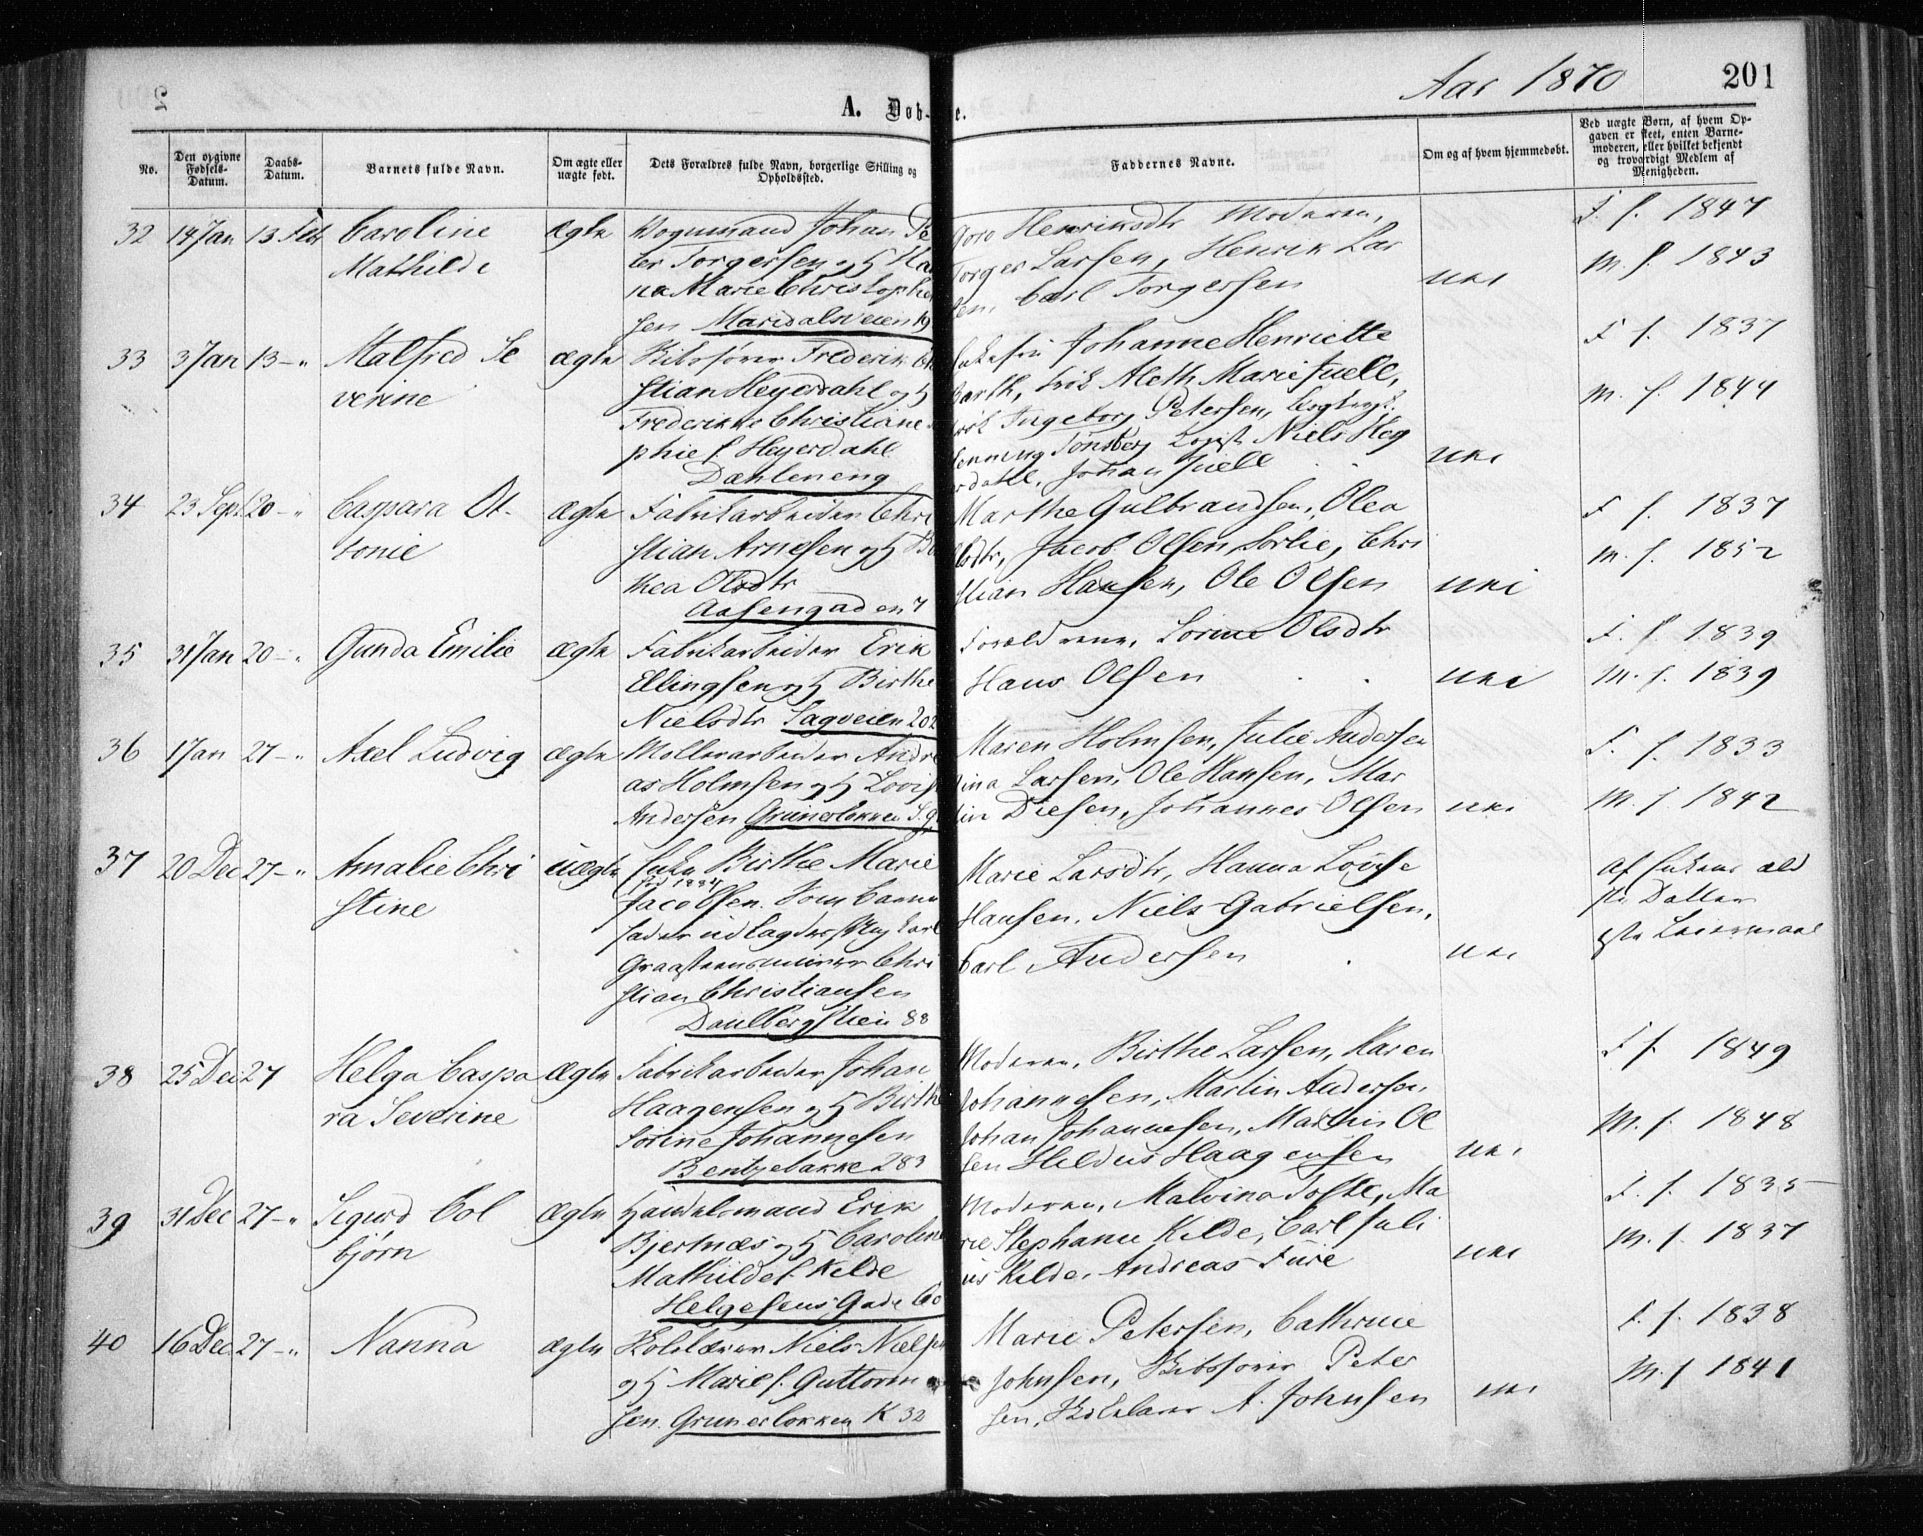 Aar 1870
201
A. Døb-
e.
No.
Den opgivne Fødsels-Datum.
Daabs-Datum.
Barnets fulde Navn.
Om ægte eller uægte født.
Dets Forældres fulde Navn, borgerlige Stilling og Opholdssted.
Faddernes Navne.
Om og af hvem hjemmedøbt.
Ved uægte Børn, af hvem Opgaven er skeet, enten Barnemoderen, eller hvilket bekjendt og troværdigt Medlem af Menigheden.
32 14 Jan 13 Feb Caroline ægte Vognmand Johan
Mathilde
ter Torgersen og H
na Marie Christophe
sen Maridalsveien 19
Henriksdtr Moderen,
Torger Larsen, Henrik Lar
sen, Carl Torgersen
F. f. 1847
M. f. 1843
33 3 Jan 13 - " Malfred Se ægte Frederik
verine
stian Heyerdahl og H
Frederikke Christiane
phie f. Heyerdahl
Dæhleneng
Johanne Henriette
Barth, Frøk Aleth Marie Juell,
Ingeborg Petersen,
Henning Tønsberg Niels Hey
erdahl, Johan Juell
F f. 1837
M. f. 1844
34 23 Sept 20 - " Caspara Ot- ægte Fabrikarbeider Chri
tonie
stian Arnesen og H
thea Olsdtr
Aasengaden 7
Marthe Gulbrandsen, Olea
Olsdtr, Jacob Olsen Sorlie, Chri
stian Hansen, Ole Olsen
F f. 1837
M. f. 1852
35 31 Jan 20 - " Gunda Emilie ægte Fabrikarbeider Erik
Ellingsen og H Birthe
Nielsdtr Sagveien 202
Forældrene, Lorine Olsdtr
Hans Olsen
F. f. 1839
M. f. 1839
36 1 Jan 27 - " Axel Ludvig ægte Møllerarbeider Andre
as Holmsen og H Lovis
Andersen Grunerløkken
Maren Holmsen, Julie Andersen
Larsen, Ole Hansen, Mar
tin Diesen, Johannes Olsen
F. f. 1833
M. f. 1842
37 20 Dec 27 - " Amalie Chri uægte Enke Birthe Marie
stine
Jacobsen. Som Barne
fader udlagdes
Graasteensmurer Chri
stian Christiansen
Daulbergstien 88
Marie Larsdtr, Hanna Lovise
Hansen, Niels Gabrielsen,
Carl Andersen
af Enkens æld
ste Datter
38 25 Dec 27 Helga Caspa ægte Fabrikarbeider Johan
ra Severine
Haagensen og H Birthe
Sorine Johannesen
Bentsebakke 283
Moderen, Birthe Larsen, Karen
Johannesen, Martin Andersen,
Johan Johannesen, Mathis Ol
sen Hildus Haagensen
F f. 1849
M. f. 1848
39 31 Dec 27 - " Sigurd Col ægte Handelsmand Erik
bjørn
Bjertnæs og H Caroline
Mathilde f. Kelde
Helgesens Gade 60
Moderen, Malvina Tofte, Ma
rie Stephanie Kelde, Carl Juli
us Kelde, Andreas Fure
F. f. 1835
M. f. 1837
40 16 Dec. 27 - " Nanna ægte Skolelærer Niels Nielsen
og H Marie f. Guttorm
sen. Grunerløkken K 32
Marie Petersen, Cathrine
Johnsen, Peter
sen, Skolelærer A. Johnsen
F. f. 1838
M. f. 1841